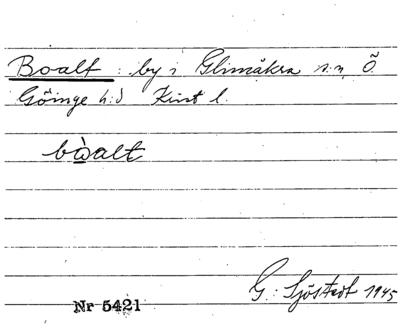 Boalt : by i Glimåkra s:n, Ö.
Göinge h:d Krist l.
bòalt
G. Sjöstedt 1945
Nr 5421